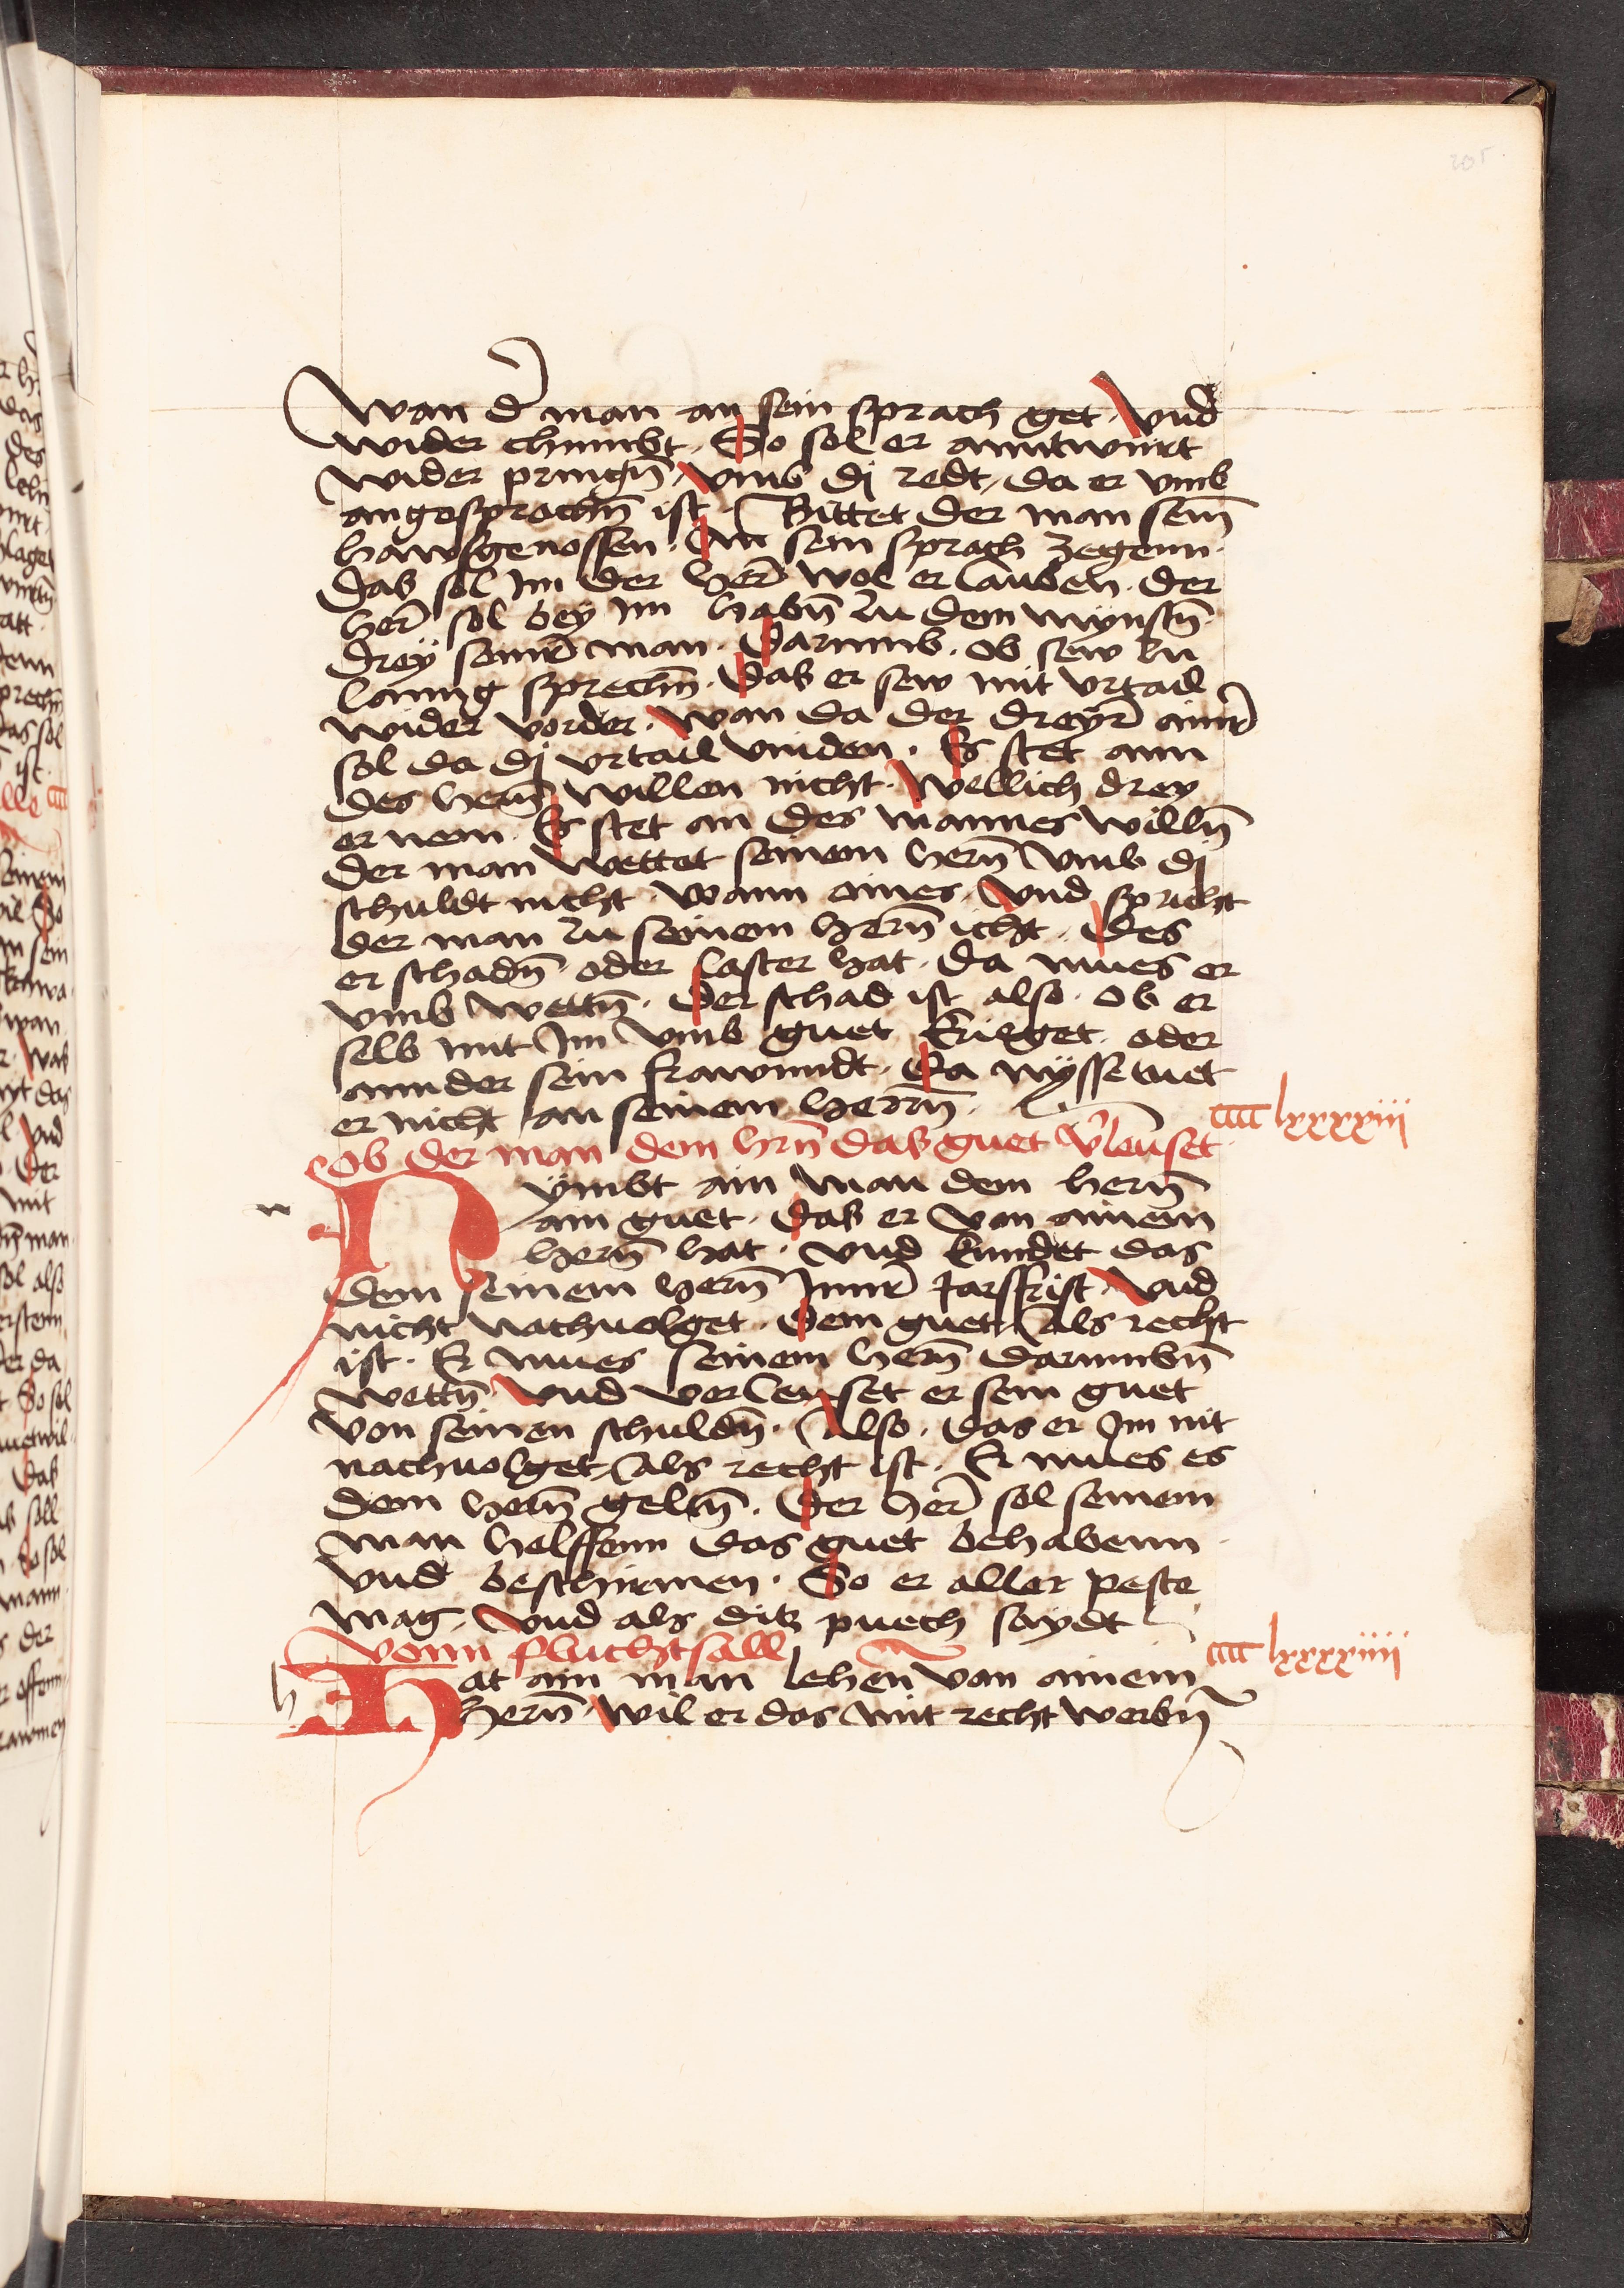 205.
Wan d̄ man an sein sprach get. Vnd
wider chumbt. So sol er anntwurt
wider pringn̄. vmb dj redt, da er vmb
angesprochn̄ ist. Bittet der man sein̄
hawsgenossen. An sein sprach zegenn.
Das sol Im der her̄ wol erlauben. der
her̄ sol bey Im habn̄ zu dem mynstn̄.
drey seinr̄ man. Darumb. ob sew zu
lanng sprechn̄. Das er sew mit vrtail
wider vorder. Wan da der dreyr̄ ainr̄
sol da dj vrtail vinden. Es stet ann
des hern̄ willen nicht. Wellich drey
er nem. Es stet an des mannes willn̄
der man wettet seinem hern̄ vmb dj
schuldt nicht. Wann aines. Vnd spricht
der man zu seinem hern̄ icht. Des
er schadn̄. oder laster hat. Da mues er
vmb wettn̄. Der schad ist also. Ob er
selb mit Im vmb guet krieget. oder
annder sein frawnndt. Da mysse tuet
er nicht an seinem herrn̄.
Ob der man dem hrn̄ das guet v̄lewset
cccc lxxxxiii
n
Nymbt ain man dem hern̄
ain guet. Das er von ainem
hern̄ hat. vnd kundet das
dem seinem hern̄ Innr̄ Jarsfrist. Vnd
nicht nachuolget. Dem guet Als recht
ist. Er mues seinem hern̄ darumbn̄
wettn̄. Vnd verlewset er sein guet
von seinen schuldn̄. Also. Das er Im nit
nachuolget, Als recht ist. Er mues es
dem hern̄ geltn̄. Der her̄ sol seinem
man helffenn das guet behabenn
vnd beschirmen. So er aller peste
mag. Vnd als ditz puech saydt
Vonn fluchtsall
cccc lxxxxiiii
h
Hat ain man lehen von ainem
hern̄. Wil er das mit recht werbn̄